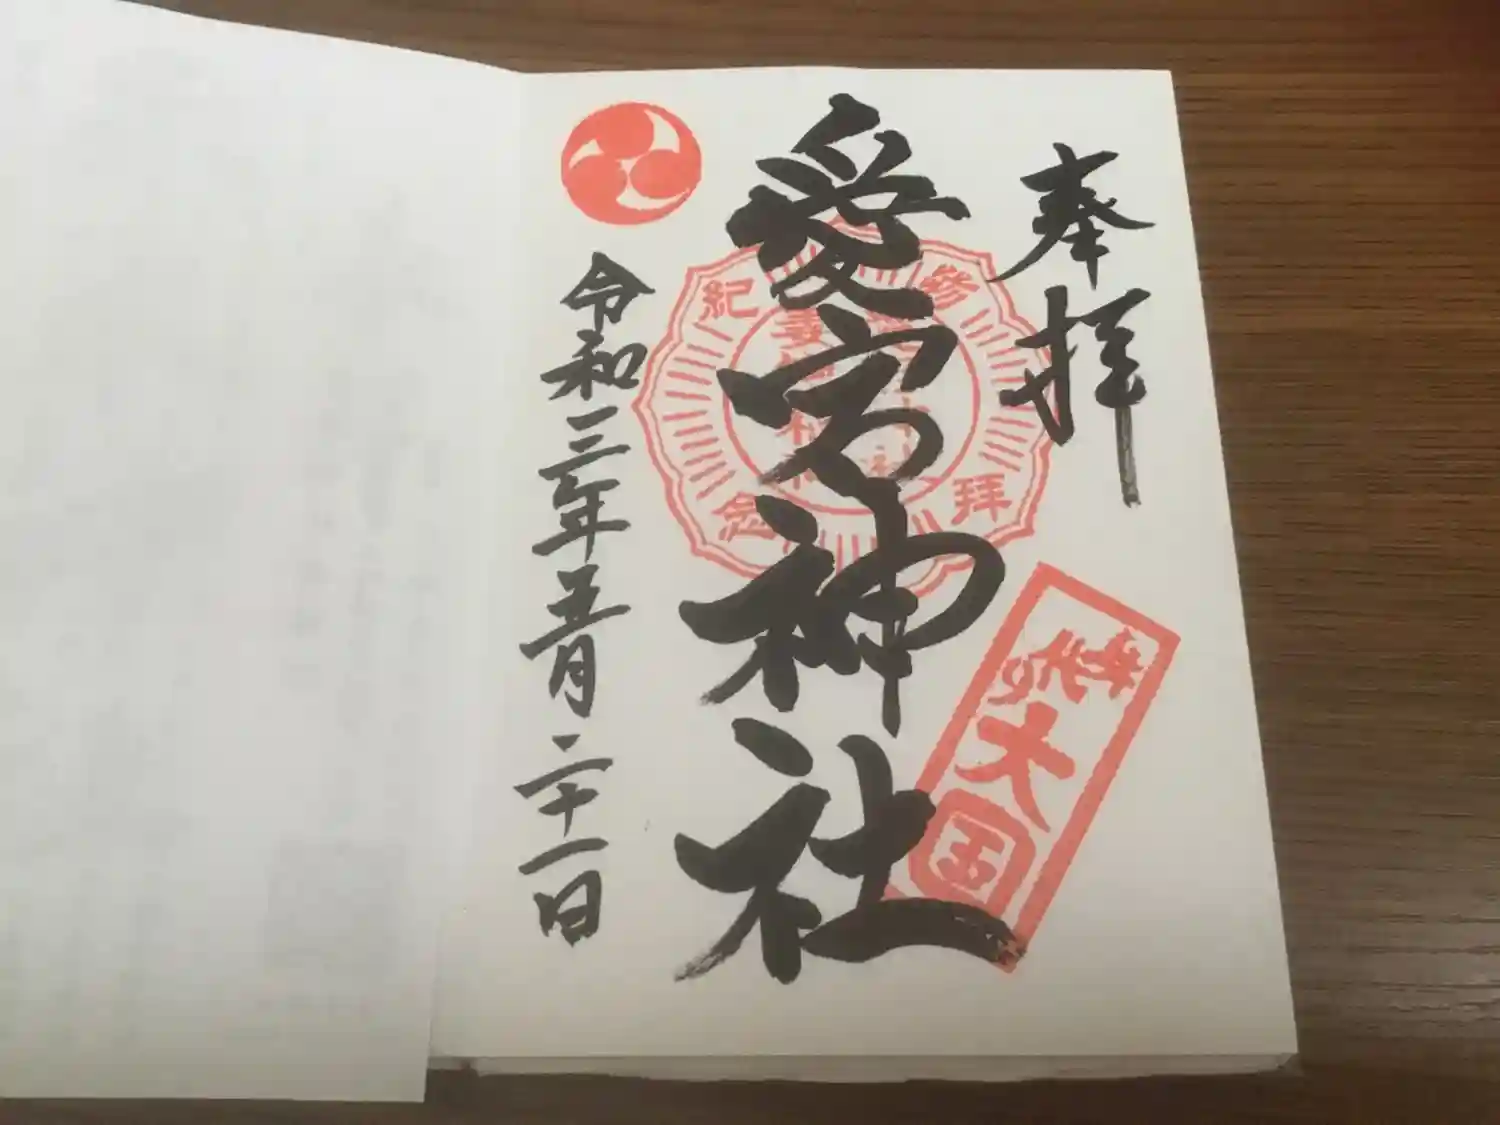 奉拝
愛宕神社
令和三年五月二十一日
参拝
紀念
大国